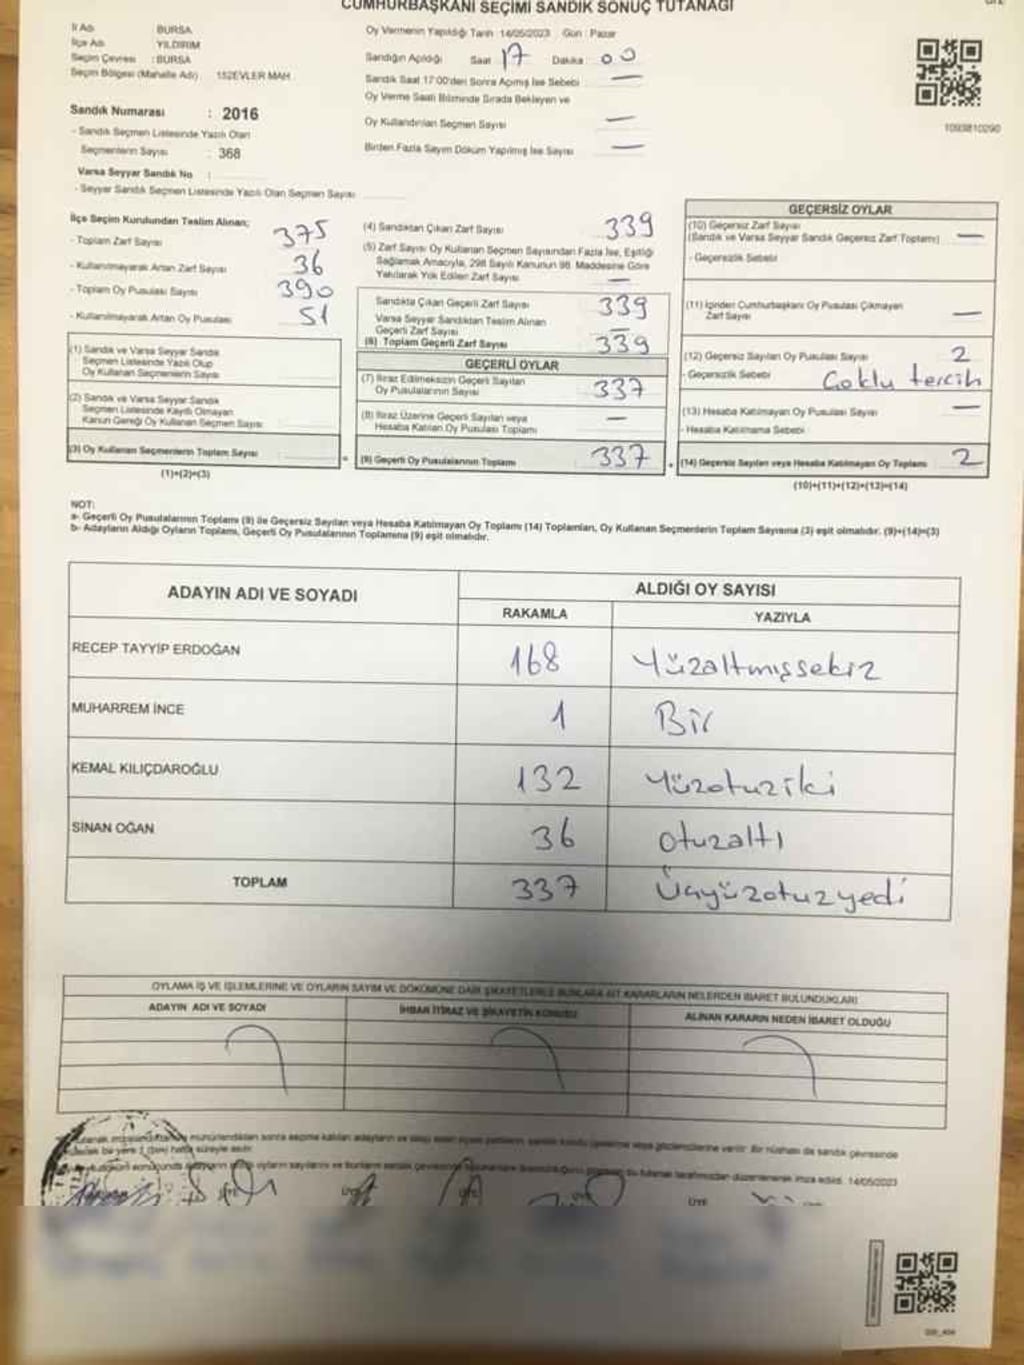 CUMHURBAŞKANI SEÇİMİ SANDIK SONUÇ TUTANAĞI
İl Adı BURSA
İlçe Adı YILDIRIM
Seçim Çevresi : BURSA
Seçim Bölgesi (Mahalle Adı) 152EVLER MAH.
Oy Vermenin Yapıldığı Tarih 14/05/2023 Gün : Pazar
Sandığın Açıldığı Saat 17 Dakika 00
Sandık Saat 17:00'den Sonra Açılmış İse Sebebi —
Oy Verme Saati Bitiminde Sırada Bekleyen ve
Oy Kullandırılan Seçmen Sayısı —
Birden Fazla Sayım Döküm Yapılmış İse Sayısı —
Sandık Numarası : 2016
- Sandık Seçmen Listesinde Yazılı Olan
Seçmenlerin Sayısı : 368
Varsa Seyyar Sandık No :
- Seyyar Sandık Seçmen Listesinde Yazılı Olan Seçmen Sayısı
1093810290
İlçe Seçim Kurulundan Teslim Alınan;
- Toplam Zarf Sayısı 375
- Kullanılmayarak Artan Zarf Sayısı 36
- Toplam Oy Pusulası Sayısı 390
- Kullanılmayarak Artan Oy Pusulası 51
(1) Sandık ve Varsa Seyyar Sandık
Seçmen Listesinde Yazılı Olup
Oy Kullanan Seçmenlerin Sayısı
(2) Sandık ve Varsa Seyyar Sandık
Seçmen Listesinde Kaydı Olmayan
Kanun Gereği Oy Kullanan Seçmen Sayısı
(3) Oy Kullanan Seçmenlerin Toplam Sayısı
(1)+(2)=(3)
(4) Sandıktan Çıkan Zarf Sayısı 339
(5) Zarf Sayısı Oy Kullanan Seçmen Sayısından Fazla İse, Eşitliği
Sağlamak Amacıyla, 298 Sayılı Kanunun 98. Maddesine Göre
Yakılarak Yok Edilen Zarf Sayısı —
Sandıkta Çıkan Geçerli Zarf Sayısı 339
Varsa Seyyar Sandıktan Teslim Alınan
Geçerli Zarf Sayısı —
(6) Toplam Geçerli Zarf Sayısı 339
GEÇERLİ OYLAR
(7) İtiraz Edilmeksizin Geçerli Sayılan
Oy Pusulalarının Sayısı 337
(8) İtiraz Üzerine Geçerli Sayılan veya
Hesaba Katılan Oy Pusulası Toplamı —
(9) Geçerli Oy Pusulalarının Toplamı 337
GEÇERSİZ OYLAR
(10) Geçersiz Zarf Sayısı
(Sandık ve Varsa Seyyar Sandık Geçersiz Zarf Toplamı) —
- Geçersizlik Sebebi
(11) İçinden Cumhurbaşkanı Oy Pusulası Çıkmayan
Zarf Sayısı —
(12) Geçersiz Sayılan Oy Pusulası Sayısı 2
- Geçersizlik Sebebi Çoklu tercih
(13) Hesaba Katılmayan Oy Pusulası Sayısı —
- Hesaba Katılmama Sebebi
(14) Geçersiz Sayılan veya Hesaba Katılmayan Oy Toplamı 2
(10)+(11)+(12)+(13)=(14)
NOT:
a- Geçerli Oy Pusulalarının Toplamı (9) ile Geçersiz Sayılan veya Hesaba Katılmayan Oy Toplamı (14) Toplamları, Oy Kullanan Seçmenlerin Toplam Sayısına (3) eşit olmalıdır. (9)+(14)=(3)
b- Adayların Aldığı Oyların Toplamı, Geçerli Oy Pusulalarının Toplamına (9) eşit olmalıdır.
ADAYIN ADI VE SOYADI ALDIĞI OY SAYISI
RAKAMLA YAZIYLA
RECEP TAYYİP ERDOĞAN 168 Yüzaltmışsekiz
MUHARREM İNCE 1 Bir
KEMAL KILIÇDAROĞLU 132 Yüzotuziki
SİNAN OĞAN 36 otuzaltı
TOPLAM 337 Üçyüzotuzyedi
OYLAMA İŞ VE İŞLEMLERİNE VE OYLARIN SAYIM VE DÖKÜMÜNE DAİR ŞİKAYETLERLE BUNLARA AİT KARARLARIN NELERDEN İBARET BULUNDUKLARI
ADAYIN ADI VE SOYADI İHBAR İTİRAZ VE ŞİKAYETİN KONUSU ALINAN KARARIN NEDEN İBARET OLDUĞU
14/05/2023
ÜYE ÜYE ÜYE ÜYE ÜYE